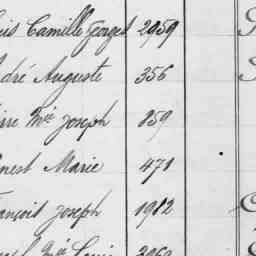 is Camille Georges 2959
dré Auguste 356
rre Mie Joseph 859
nest Marie 471
ançois Joseph 1982
Mie Louis 3969